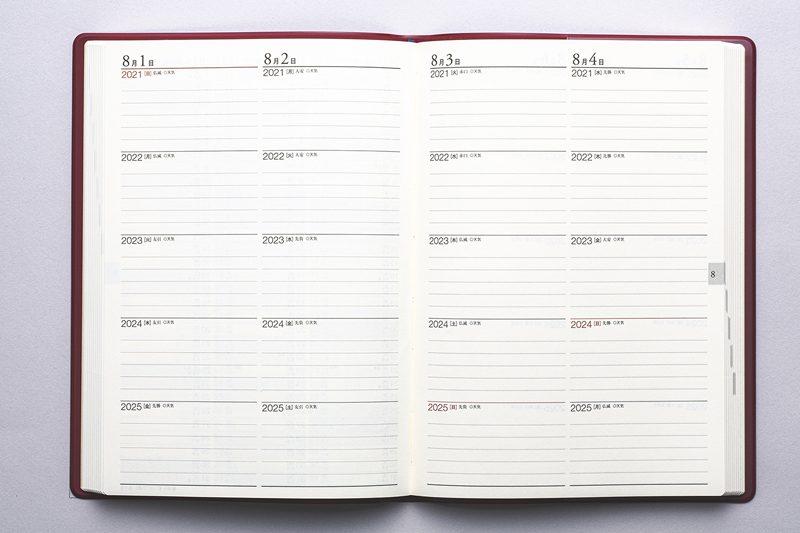 8月1日
2021 [日] 仏滅 ○天気
2022 [月] 仏滅 ○天気
2023 [火] 友引 ○天気
2024 [木] 友引 ○天気
2025 [金] 先勝 ○天気
8月2日
2021 [月] 大安 ○天気
2022 [火] 大安 ○天気
2023 [水] 先負 ○天気
2024 [金] 先負 ○天気
2025 [土] 友引 ○天気
8月3日
2021 [火] 赤口 ○天気
2022 [水] 赤口 ○天気
2023 [木] 仏滅 ○天気
2024 [土] 仏滅 ○天気
2025 [日] 先負 ○天気
8月4日
2021 [水] 先勝 ○天気
2022 [木] 先勝 ○天気
2023 [金] 大安 ○天気
2024 [日] 先勝 ○天気
2025 [月] 仏滅 ○天気
8